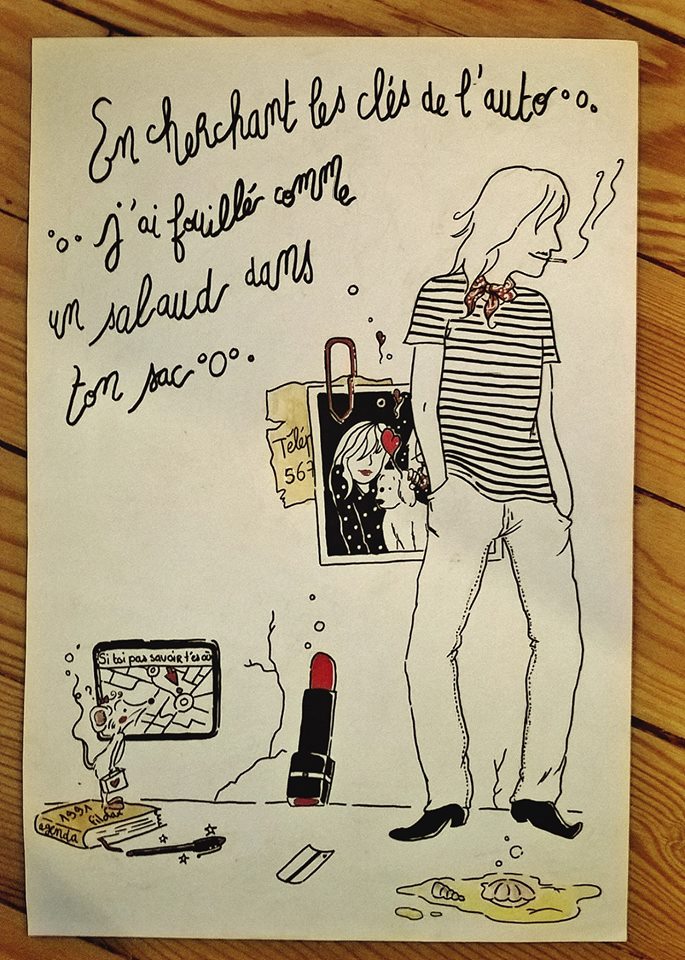 En cherchant les clés de l'auto...
... j'ai fouillé comme
un salaud dans
ton sac...
Télé
567
Si toi pas savoir t'es où
1991
agenda